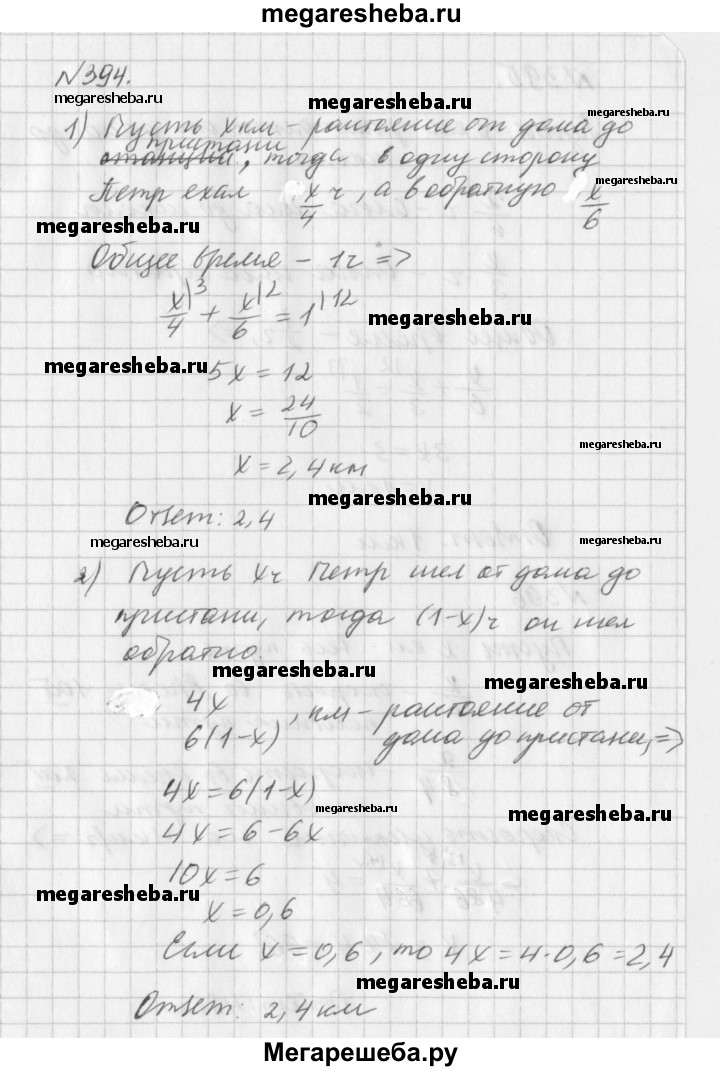 megaresheba.ru
№394.
megaresheba.ru megaresheba.ru megaresheba.ru
1) Пусть x км – растояние от дома до
пристани
станции, тогда в одну сторону
megaresheba.ru
Петр ехал x/4 ч, а в обратную x/6
megaresheba.ru
Общее время – 1ч =>
x/4 |3 + x/6 |2 = 1 |12
megaresheba.ru
megaresheba.ru
5x = 12
x = 24/10
megaresheba.ru
x = 2,4 км
megaresheba.ru
Ответ: 2,4
megaresheba.ru megaresheba.ru
2) Пусть x ч Петр шел от дома до
пристани, тогда (1-x) ч он шел
обратно.
megaresheba.ru
megaresheba.ru
4x , км – растояние от
6(1-x) дома до пристани, =>
4x = 6(1-x)
megaresheba.ru
megaresheba.ru
4x = 6 - 6x
10x = 6
megaresheba.ru
x = 0,6
Если x = 0,6, то 4x = 4·0,6 = 2,4
megaresheba.ru
Ответ: 2,4 км
Мегарешеба.ру